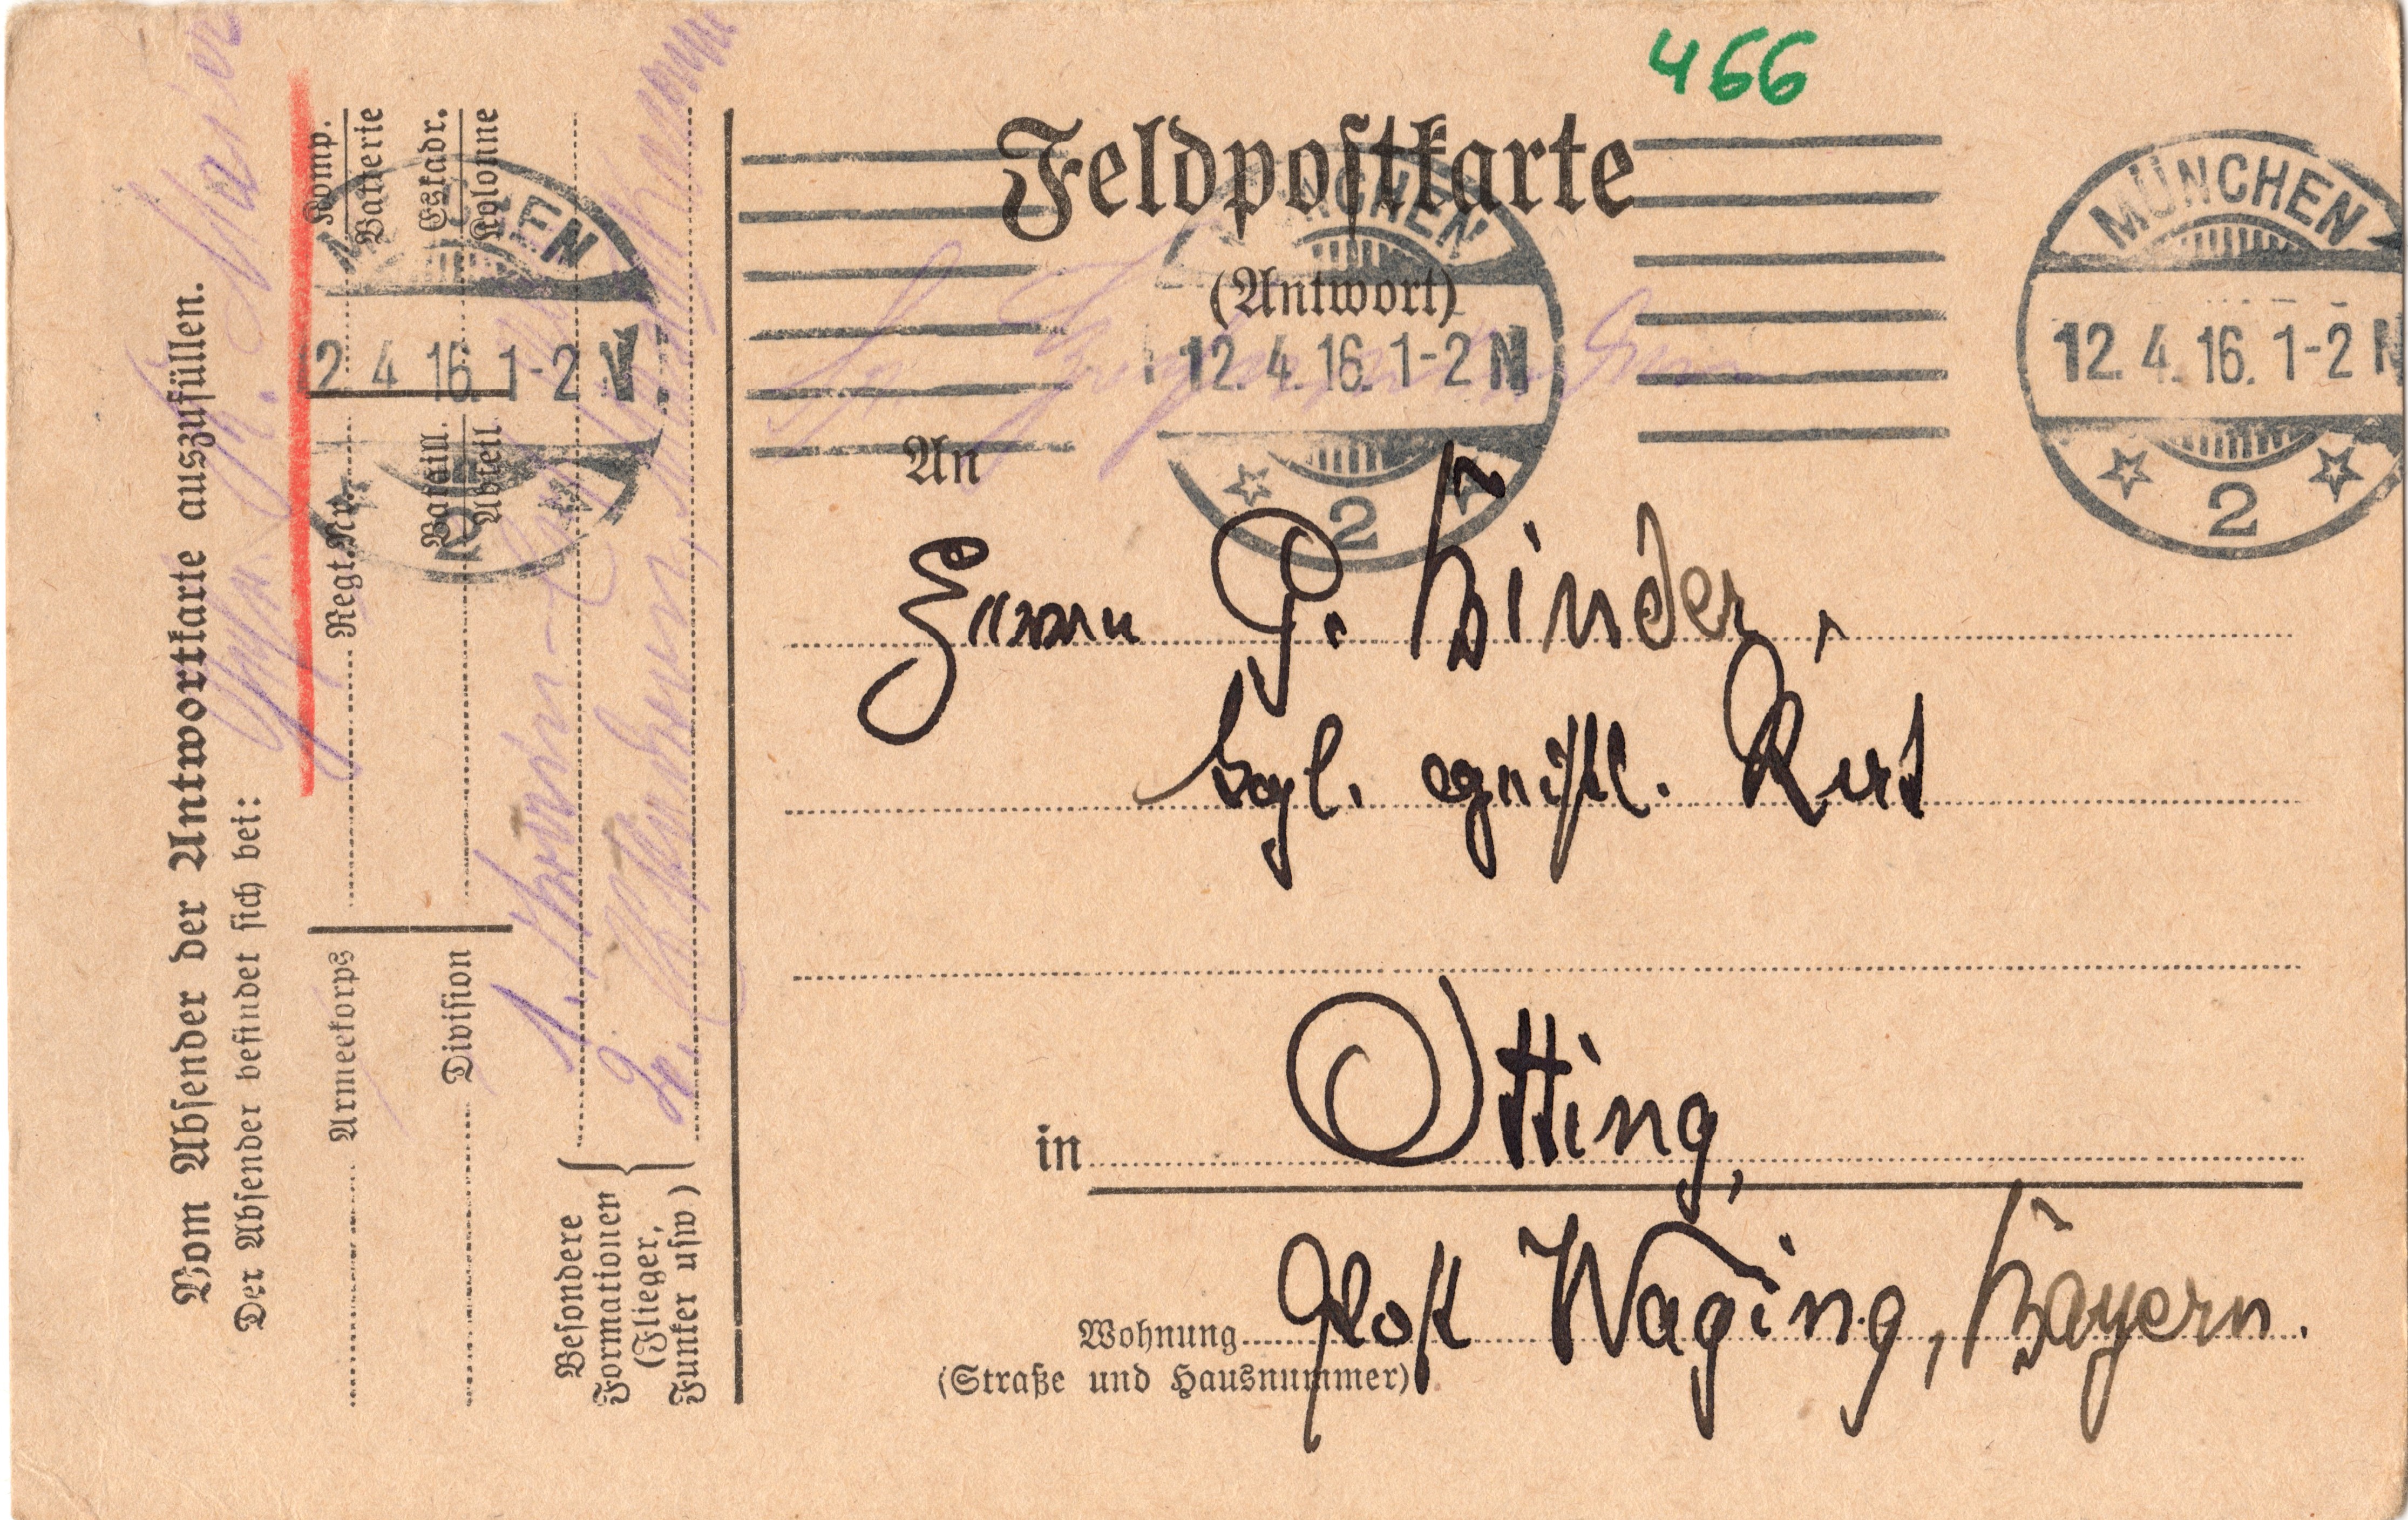 466
Feldpostkarte
(Antwort)
MÜNCHEN
12. 4. 16. 1-2 N
2
MÜNCHEN
12. 4. 16. 1-2 N
2
An
Herrn G. Binder,
kgl. geistl. Rat
in Otting,
Post Waging, Bayern.
Wohnung
(Straße und Hausnummer)
Vom Absender der Antwortkarte auszufüllen.
Der Absender befindet sich bei:
Armeekorps
Regt. Nr.
Komp.
Batterie
Division
Bataill.
Abteil.
Eskadr.
Kolonne
Besondere
Formationen
(Flieger,
Funker usw)
1.
2. München,
12 4 16 1-2 N